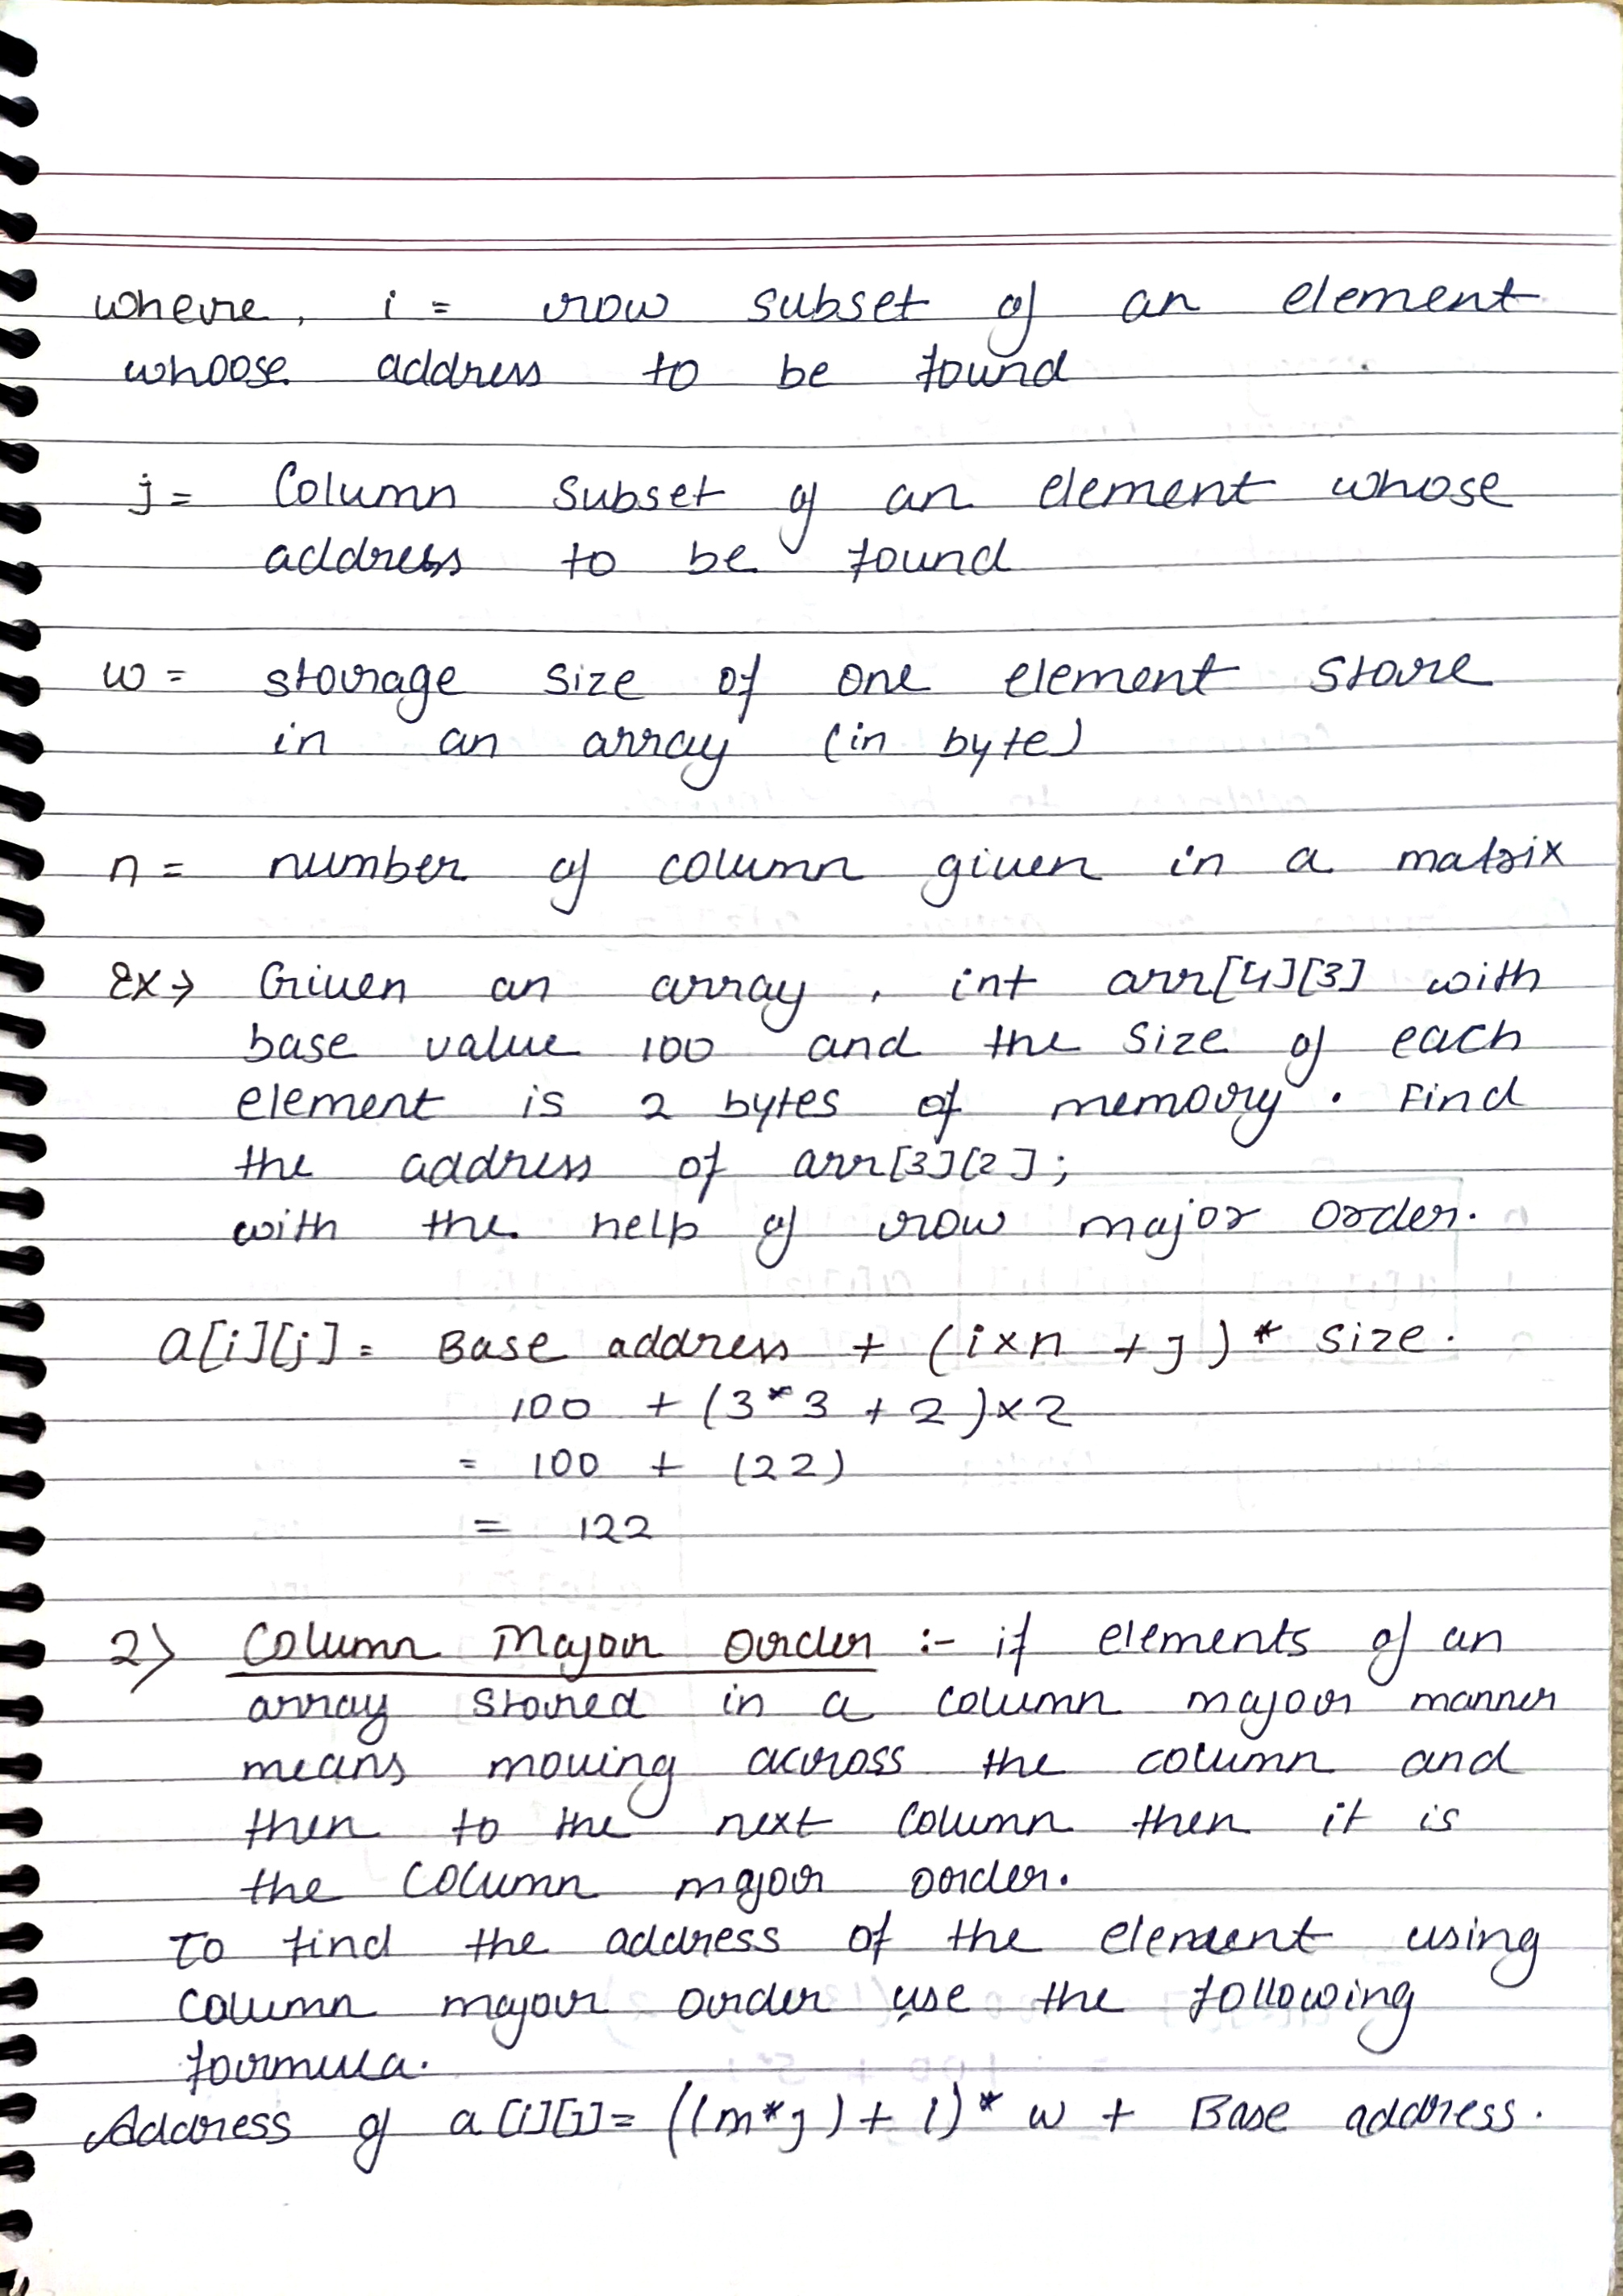 where, i = row subset of an element
whoose address to be found
j = Column subset of an element whose
address to be found
w = storage size of one element store
in an array (in byte)
n = number of column given in a matrix
Ex→ Given an array, int arr[4][3] with
base value 100 and the size of each
element is 2 bytes of memory. Find
the address of arr[3][2];
with the help of row major order.
a[i][j] = Base address + (i×n + j) * size.
100 + (3*3 + 2)×2
= 100 + (22)
= 122
2) Column Major Order :- if elements of an
array stored in a column major manner
means moving across the column and
then to the next column then it is
the column major order.
To find the address of the element using
column major order use the following
formula.
Address of a[i][j] = ((m*j) + i) * w + Base address.